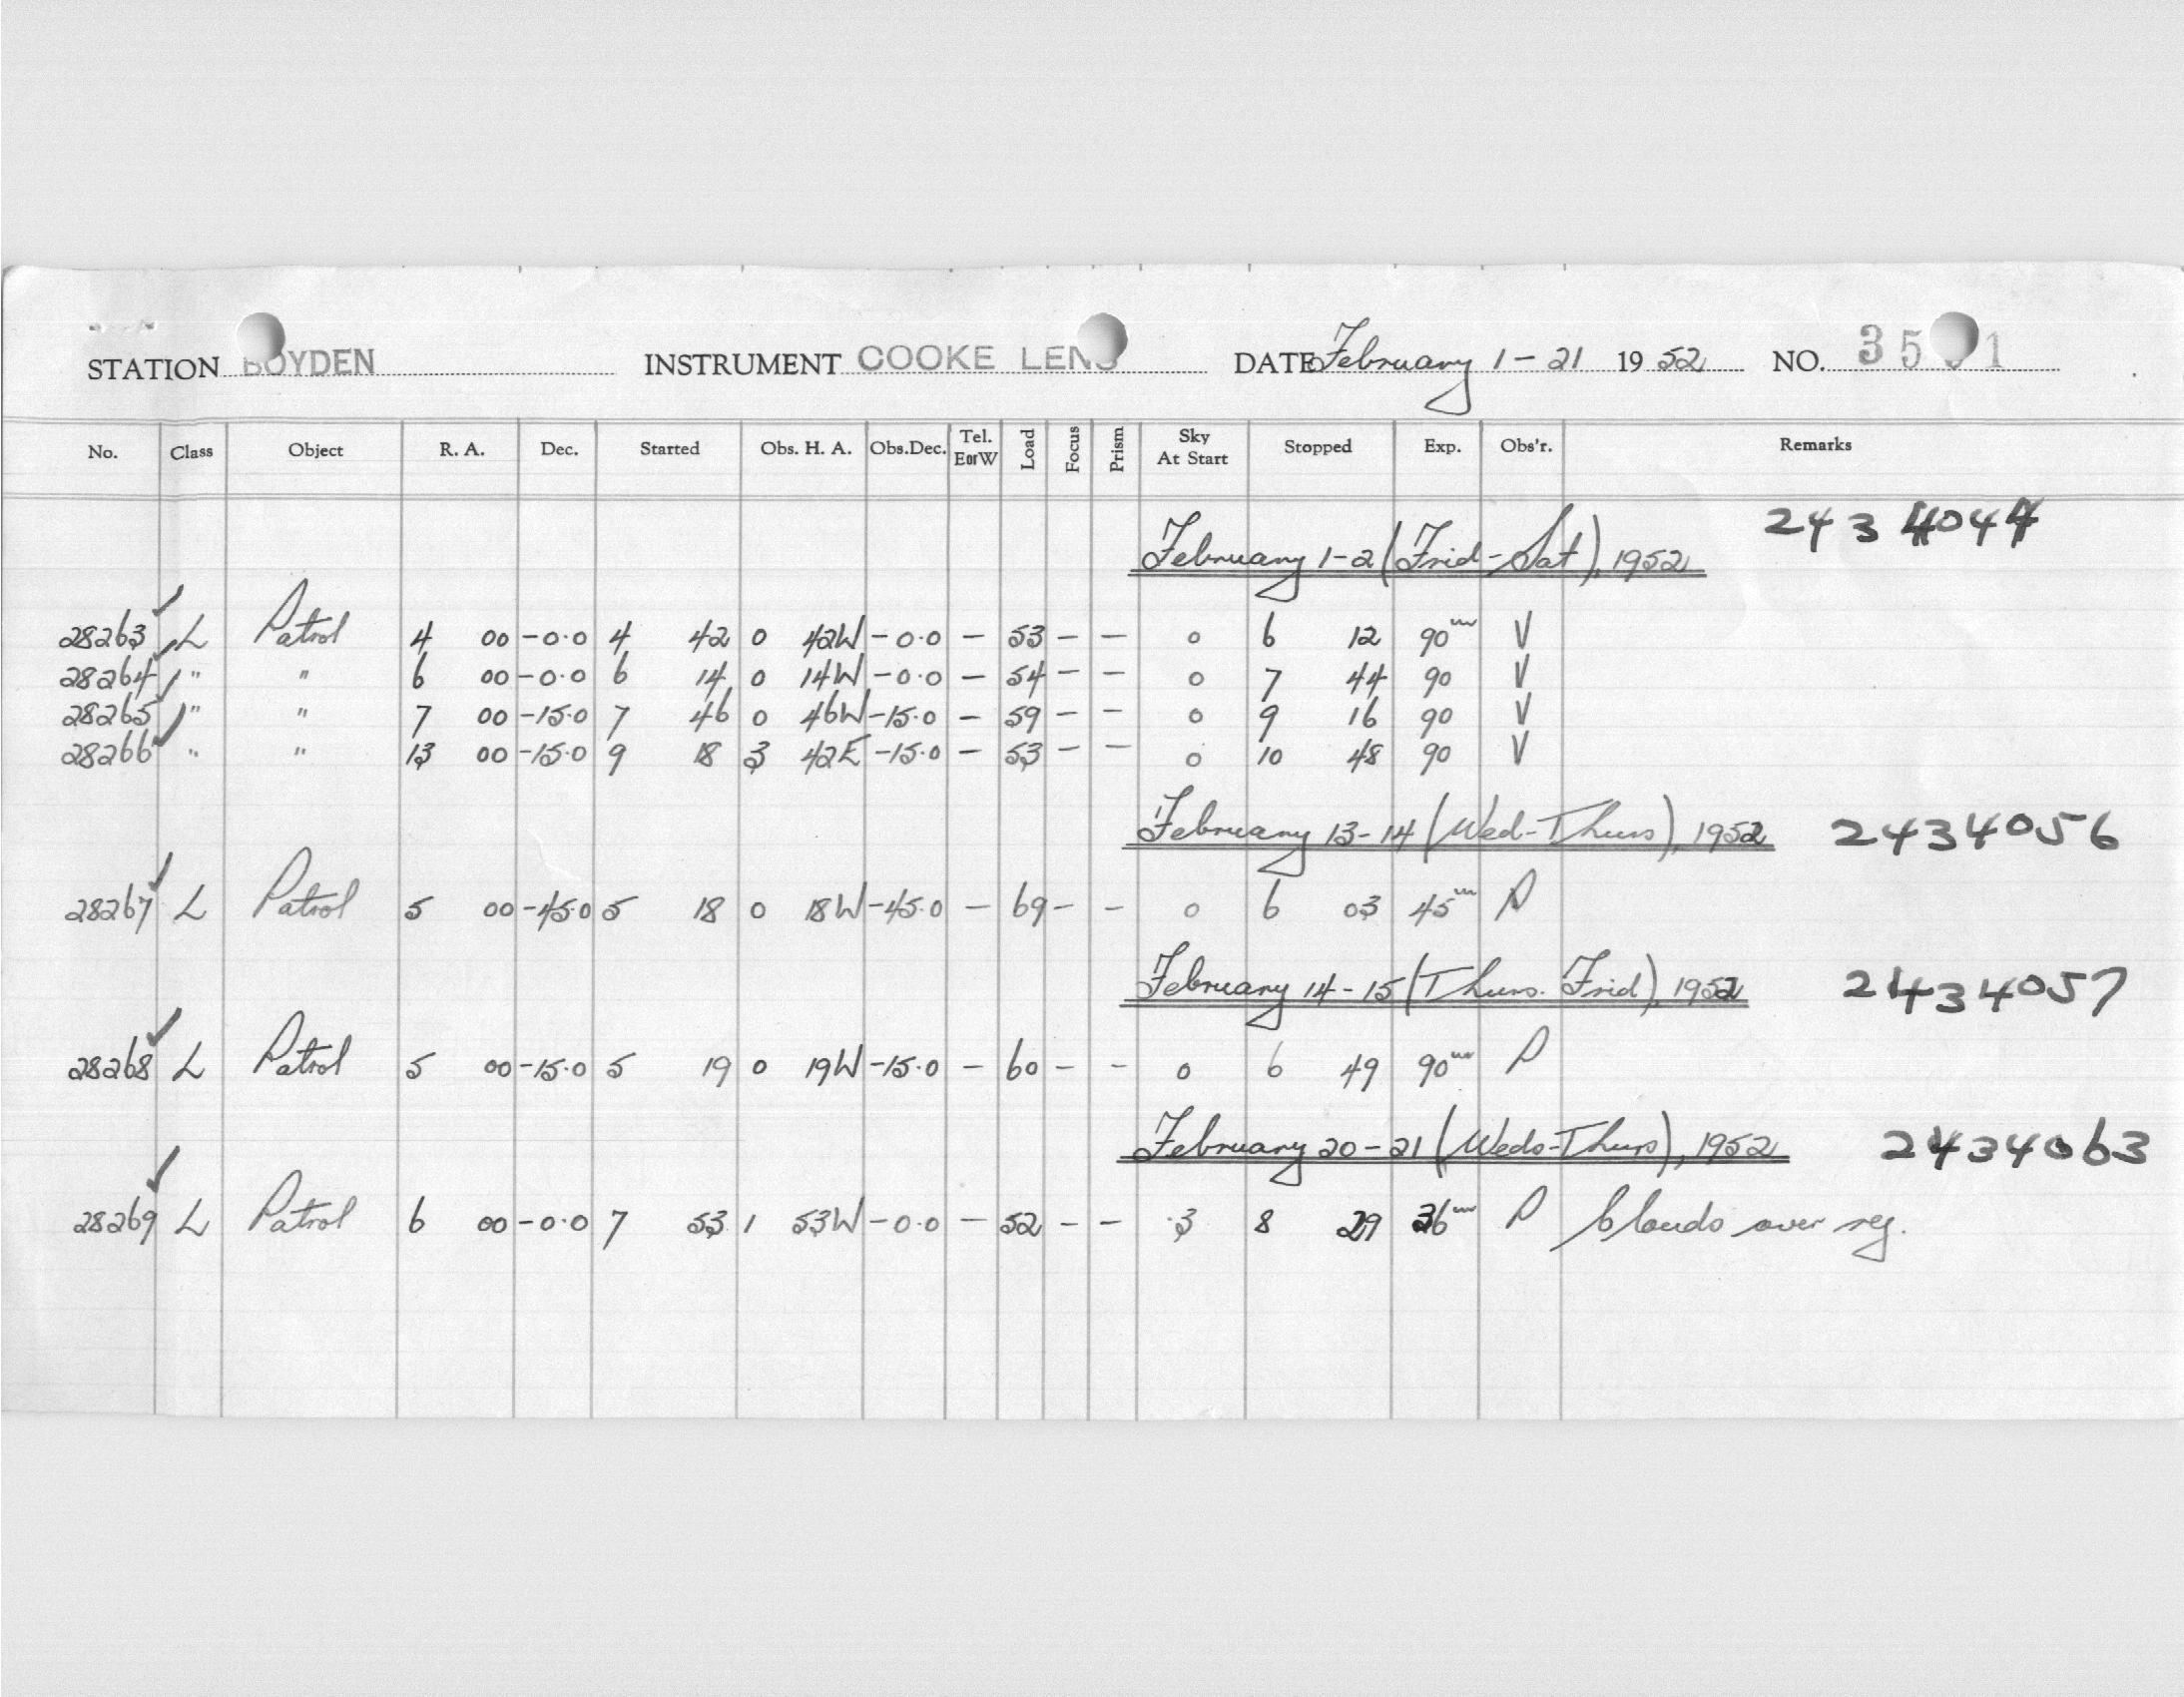 STATION BOYDEN INSTRUMENT COOKE LENS DATE February 1-21 1952 NO. 35 1
No. Class Object R. A. Dec. Started Obs. H. A. Obs.Dec. Tel. EorW Load Focus Prism Sky At Start Stopped Exp. Obs'r. Remarks
February 1-2 (Frid-Sat), 1952 2434044
28263 L Patrol 4 00 -0.0 4 42 0 42W -0.0 - 53 - - 0 6 12 90m V
28264 " " 6 00 -0.0 6 14 0 14W -0.0 - 54 - - 0 7 44 90 V
28265 " " 7 00 -15.0 7 46 0 46W -15.0 - 59 - - 0 9 16 90 V
28266 " " 13 00 -15.0 9 18 3 42E -15.0 - 53 - - 0 10 48 90 V
February 13-14 (Wed-Thurs), 1952 2434056
28267 L Patrol 5 00 -45.0 5 18 0 18W -45.0 - 69 - - 0 6 03 45m P
February 14-15 (Thurs. Frid), 1952 2434057
28268 L Patrol 5 00 -15.0 5 19 0 19W -15.0 - 60 - - 0 6 49 90m P
February 20-21 (Weds-Thurs), 1952 2434063
28269 L Patrol 6 00 -0.0 7 53 1 53W -0.0 - 52 - - 3 8 29 36m P Clouds over reg.